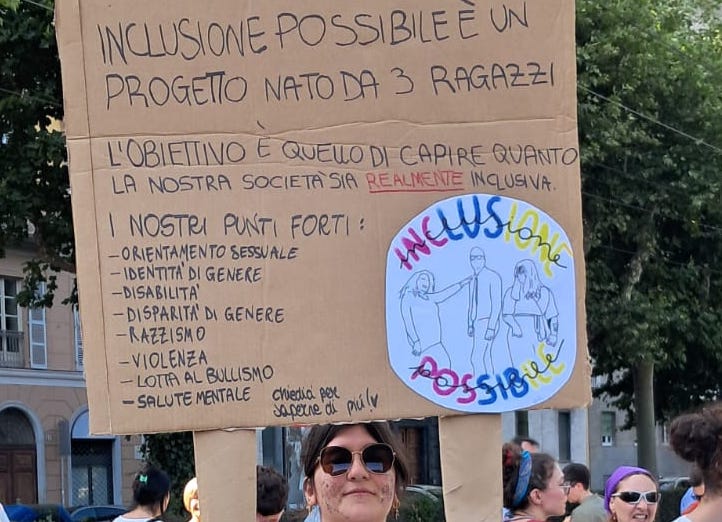 INCLUSIONE POSSIBILE È UN
PROGETTO NATO DA 3 RAGAZZI
L'OBIETTIVO È QUELLO DI CAPIRE QUANTO
LA NOSTRA SOCIETÀ SIA REALMENTE INCLUSIVA.
I NOSTRI PUNTI FORTI:
-ORIENTAMENTO SESSUALE
-IDENTITÀ DI GENERE
-DISABILITÀ
-DISPARITÀ DI GENERE
-RAZZISMO
-VIOLENZA
-LOTTA AL BULLISMO
-SALUTE MENTALE
chiedici per
saperne di più!
INCLUSIONE
inclusione
possibile
POSSIBILE